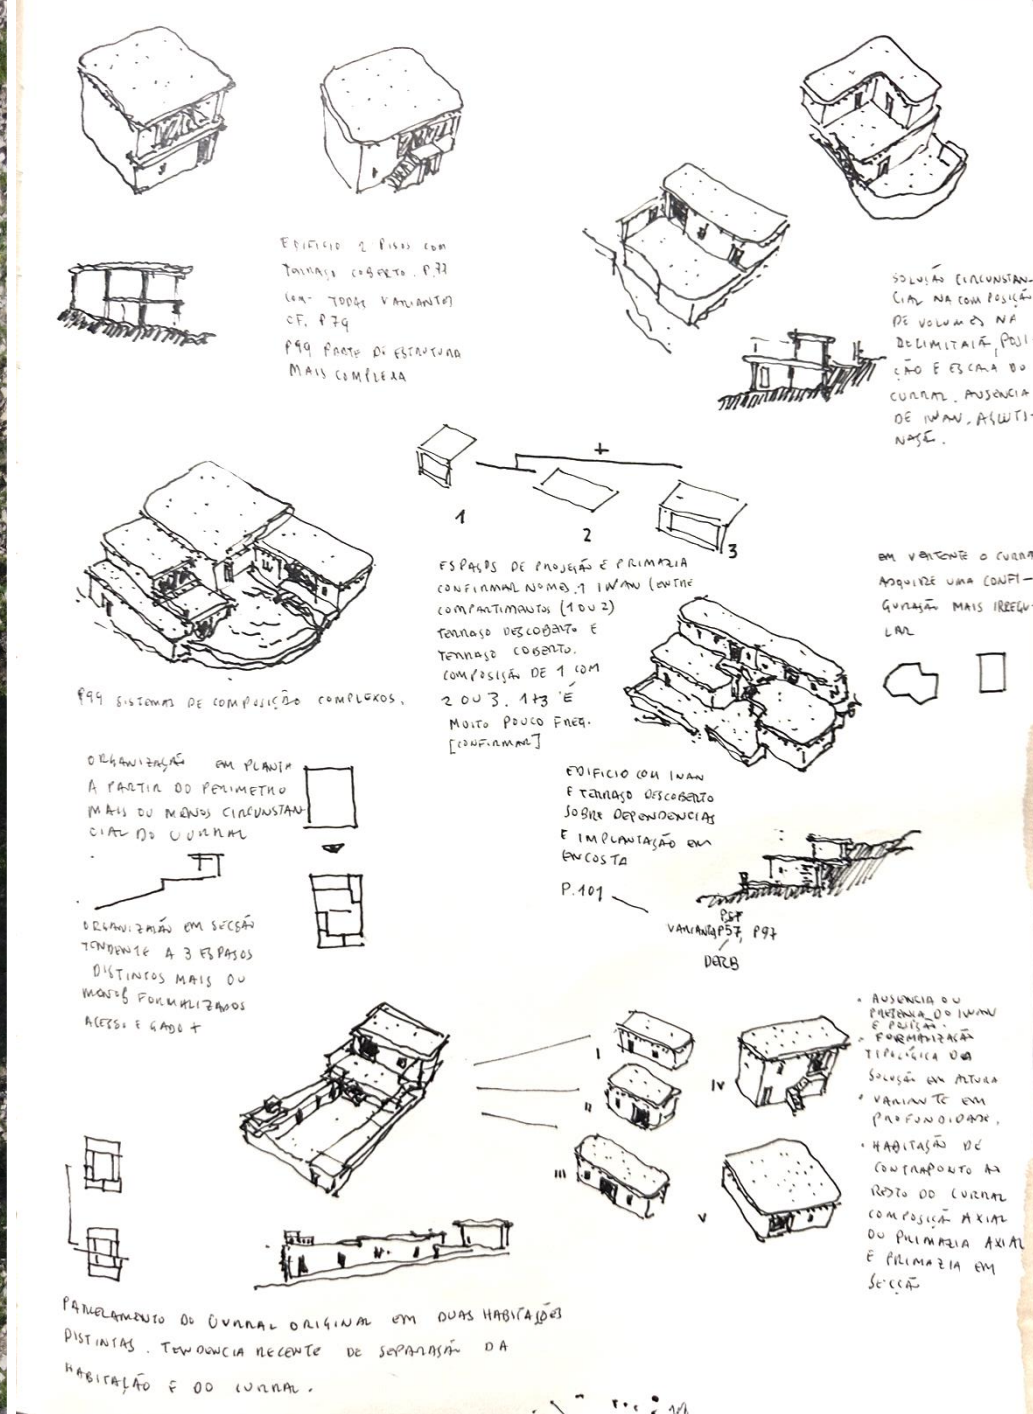 EDIFICIO 2 PISOS COM
TERRAÇO COBERTO. P.77
COM TODAS VARIANTES
CF. P79
P99 PARTE DE ESTRUTURA
MAIS COMPLEXA
SOLUÇÃO CIRCUNSTAN-
CIAL NA COMPOSIÇÃO
DE VOLUMES NA
POSI-
ÇÃO E ESCALA DO
CURRAL. AUSENCIA
DE IWAN, AGLUTI-
NAÇÃO.
+
1
2
3
ESPAÇOS DE PROJEÇÃO E PRIMAZIA
CONFIRMAR NOMES. 1 IWAN (ENTRE
COMPARTIMENTOS (1 OU 2)
TERRAÇO DESCOBERTO E
TERRAÇO COBERTO.
COMPOSIÇÃO DE 1 COM
2 OU 3. 1+3 É
MUITO POUCO FREQ.
[CONFIRMAR]
EM VERTENTE O CURRA
ADQUIRE UMA CONFI-
GURAÇÃO MAIS IRREGU-
LAR
P99 SISTEMAS DE COMPOSIÇÃO COMPLEXOS.
ORGANIZAÇÃO EM PLANTA
A PARTIR DO PERIMETRO
MAIS OU MENOS CIRCUNSTAN
CIAL DO CURRAL
ORGANIZAÇÃO EM SECÇÃO
TENDENTE A 3 ESPAÇOS
DISTINTOS MAIS OU
MENOS FORMALIZADOS
ACESSO E GADO +
EDIFICIO COM IWAN
E TERRAÇO DESCOBERTO
SOBRE DEPENDENCIAS
E IMPLANTAÇÃO EM
ENCOSTA
P.101
P57
VARIANTE P57, P97
DERB
I
II
III
IV
V
• AUSENCIA OU
PRESENÇA DO IWAN
E POSIÇÃO.
• FORMALIZAÇÃO
TIPOLÓGICA DA
SOLUÇÃO EM ALTURA
• VARIANTE EM
PROFUNDIDADE.
• HABITAÇÃO DE
CONTRAPONTO AO
RESTO DO CURRAL
COMPOSIÇÃO AXIAL
OU PRIMAZIA AXIAL
E PRIMAZIA EM
SECÇÃO
PARCELAMENTO DO CURRAL ORIGINAL EM DUAS HABITAÇÕES
DISTINTAS. TENDENCIA RECENTE DE SEPARAÇÃO DA
HABITAÇÃO E DO CURRAL.